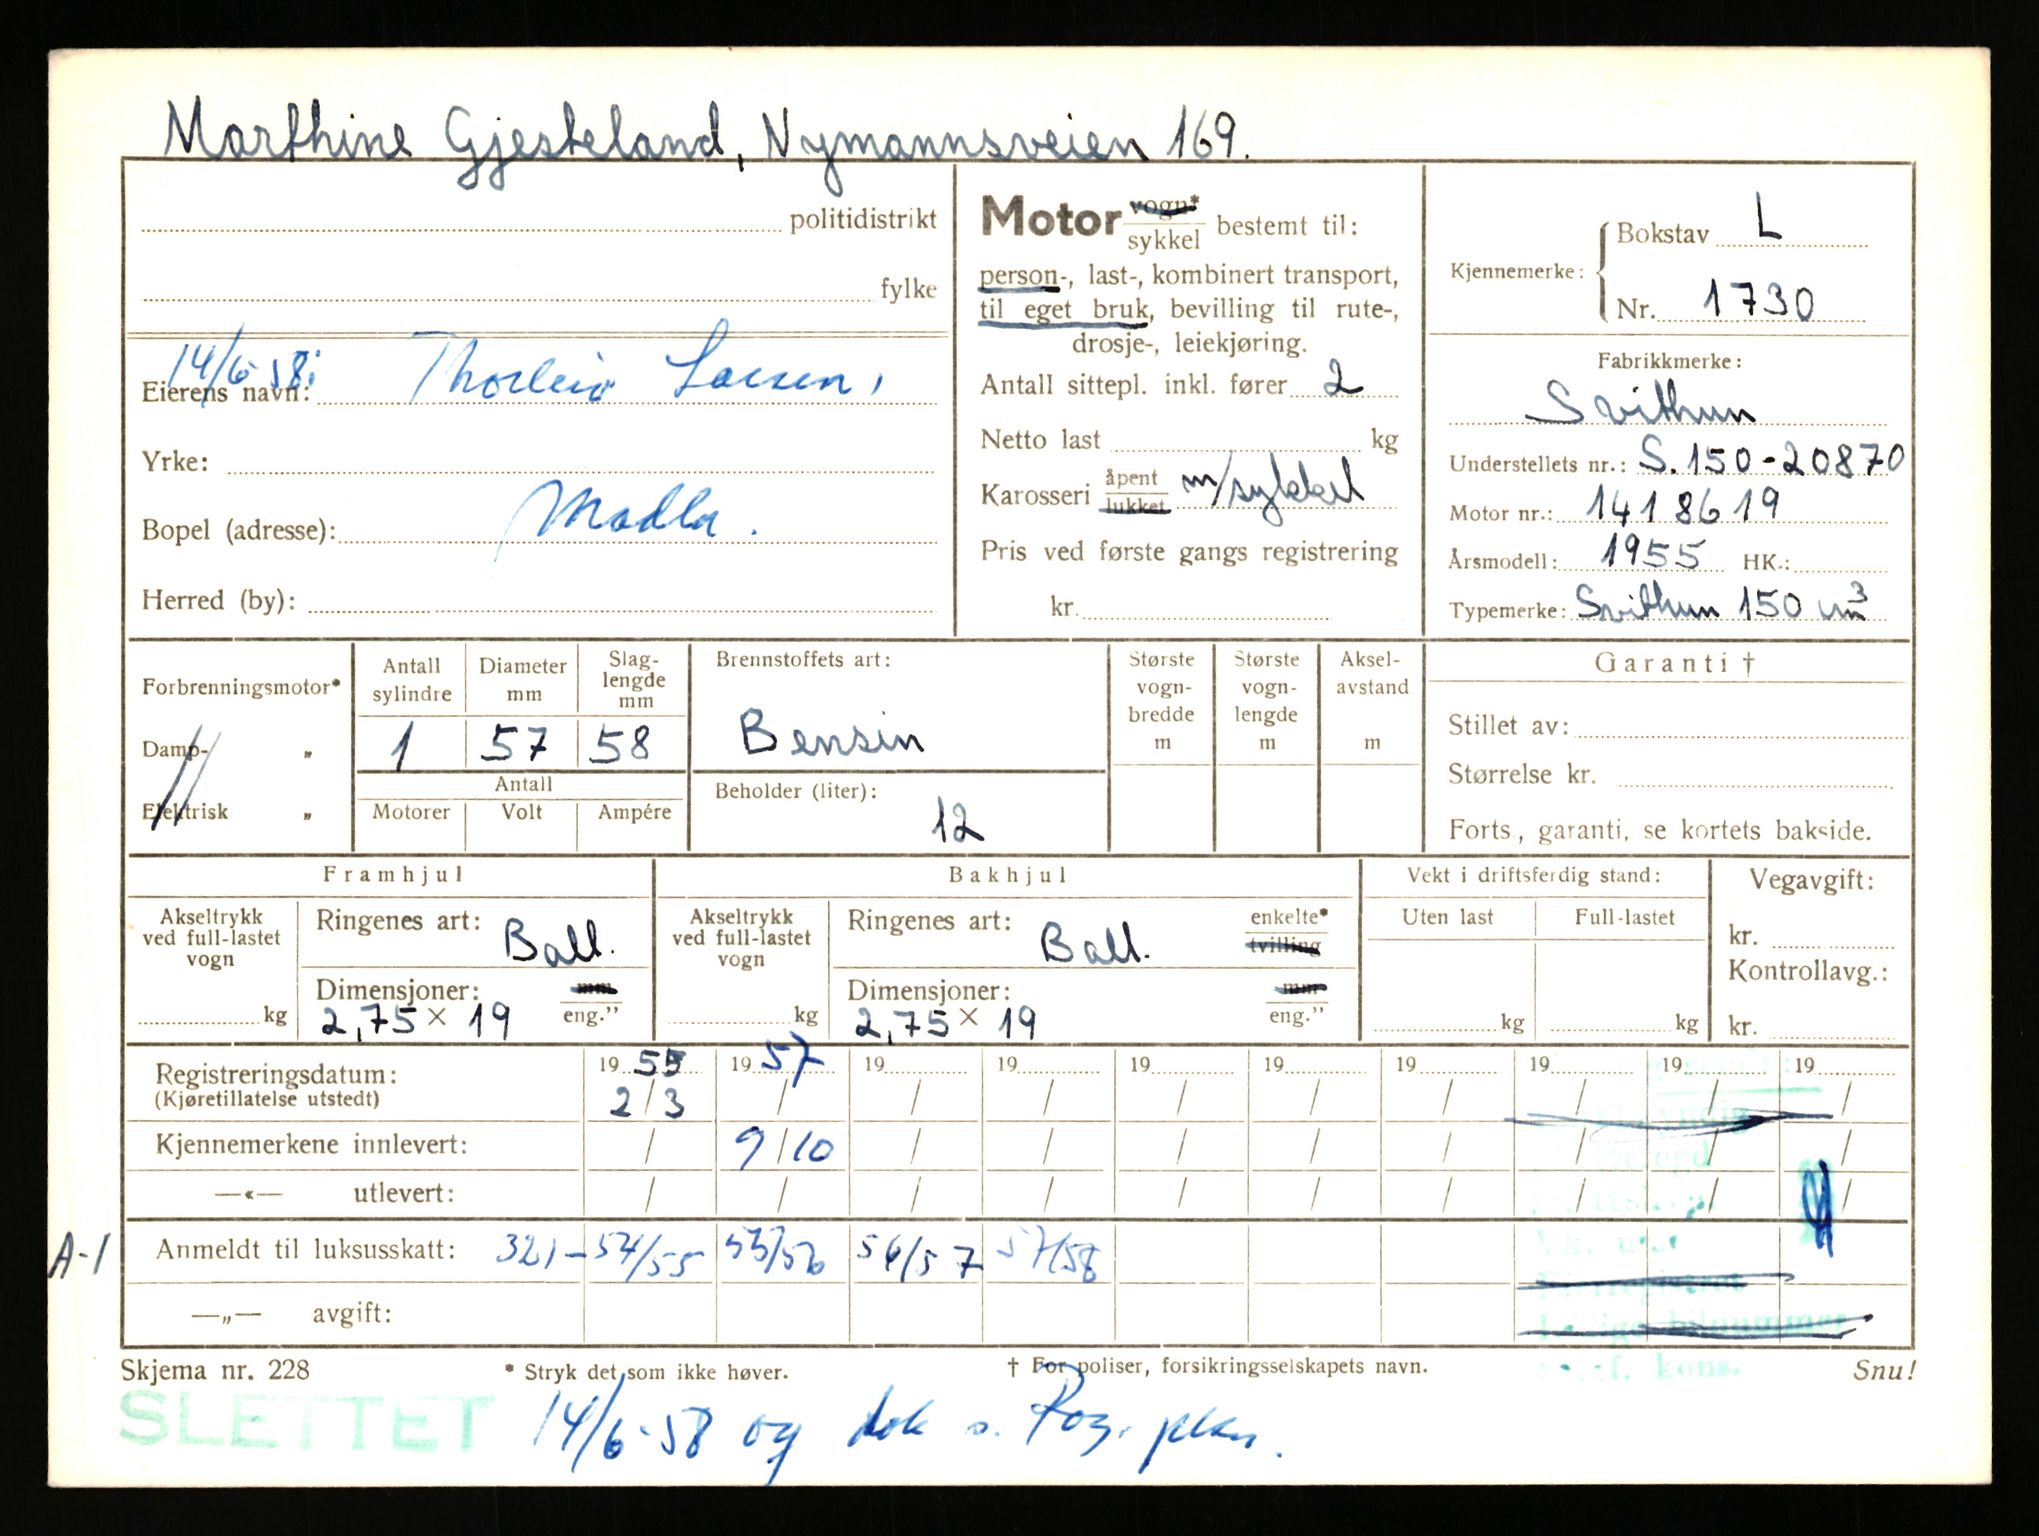 Marthine Gjesteland, Nymannsveien 169.
politidistrikt
fylke
14/6-58: Thorleiv Larsen,
Eierens navn:
Yrke:
Bopel (adresse): Madla.
Herred (by):
Motor vogn* sykkel bestemt til:
person-, last-, kombinert transport,
til eget bruk, bevilling til rute-,
drosje-, leiekjøring.
Antall sittepl. inkl. fører 2
Netto last kg
Karosseri åpent lukket m/sykkel
Pris ved første gangs registrering
kr.
Kjennemerke: Bokstav L
Nr. 1730
Fabrikkmerke:
Svithun
Understellets nr.: S.150-20870
Motor nr.: 1418619
Årsmodell: 1955 HK.:
Typemerke: Svithun 150 cm3
Forbrenningsmotor*
Damp- „
Elektrisk „
Antall sylindre Diameter mm Slag-lengde mm
1 57 58
Antall
Motorer Volt Ampére
Brennstoffets art:
Bensin
Beholder (liter):
12
Største vogn-bredde m
Største vogn-lengde m
Aksel-avstand m
Garanti †
Stillet av:
Størrelse kr.
Forts., garanti, se kortets bakside.
Framhjul
Akseltrykk ved full-lastet vogn
kg
Ringenes art: Ball.
Dimensjoner: mm
2,75 × 19 eng.”
Bakhjul
Akseltrykk ved full-lastet vogn
kg
Ringenes art: Ball. enkelte* tvilling
Dimensjoner: mm
2,75 × 19 eng.”
Vekt i driftsferdig stand:
Uten last Full-lastet
kg kg
Vegavgift:
kr.
Kontrollavg.:
kr.
Registreringsdatum: 19 55 19 57 19 19 19 19 19 19 19 19
(Kjøretillatelse utstedt) 2/3 / / / / / / / / /
Kjennemerkene innlevert: / 9/10 / / / / / / / /
—«— utlevert: / / / / / / / / / /
A-1 Anmeldt til luksusskatt: 321- 54/55 55/56 56/57 57/58
—„— avgift:
kons.
Skjema nr. 228 * Stryk det som ikke høver. † For poliser, forsikringsselskapets navn. Snu!
SLETTET 14/6-58 og